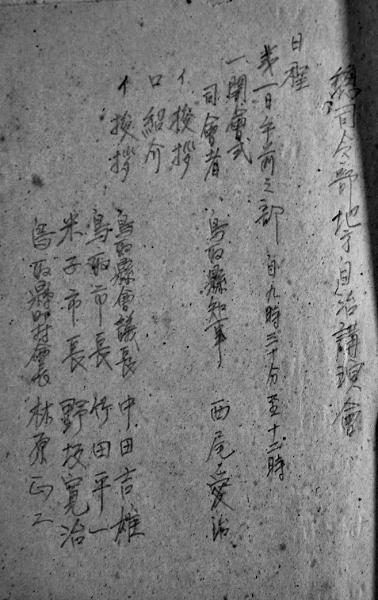 總司令部地方自治講演會
日程
第一日午前之部 自九時三十分至十二時
一開會式
司會者 鳥取縣知事 西尾愛治
イ挨拶
ロ紹介
イ挨拶 鳥取縣會議長 中田吉雄
鳥取市長 竹田平一
米子市長 野坂寛治
鳥取縣町村會長 林原正二